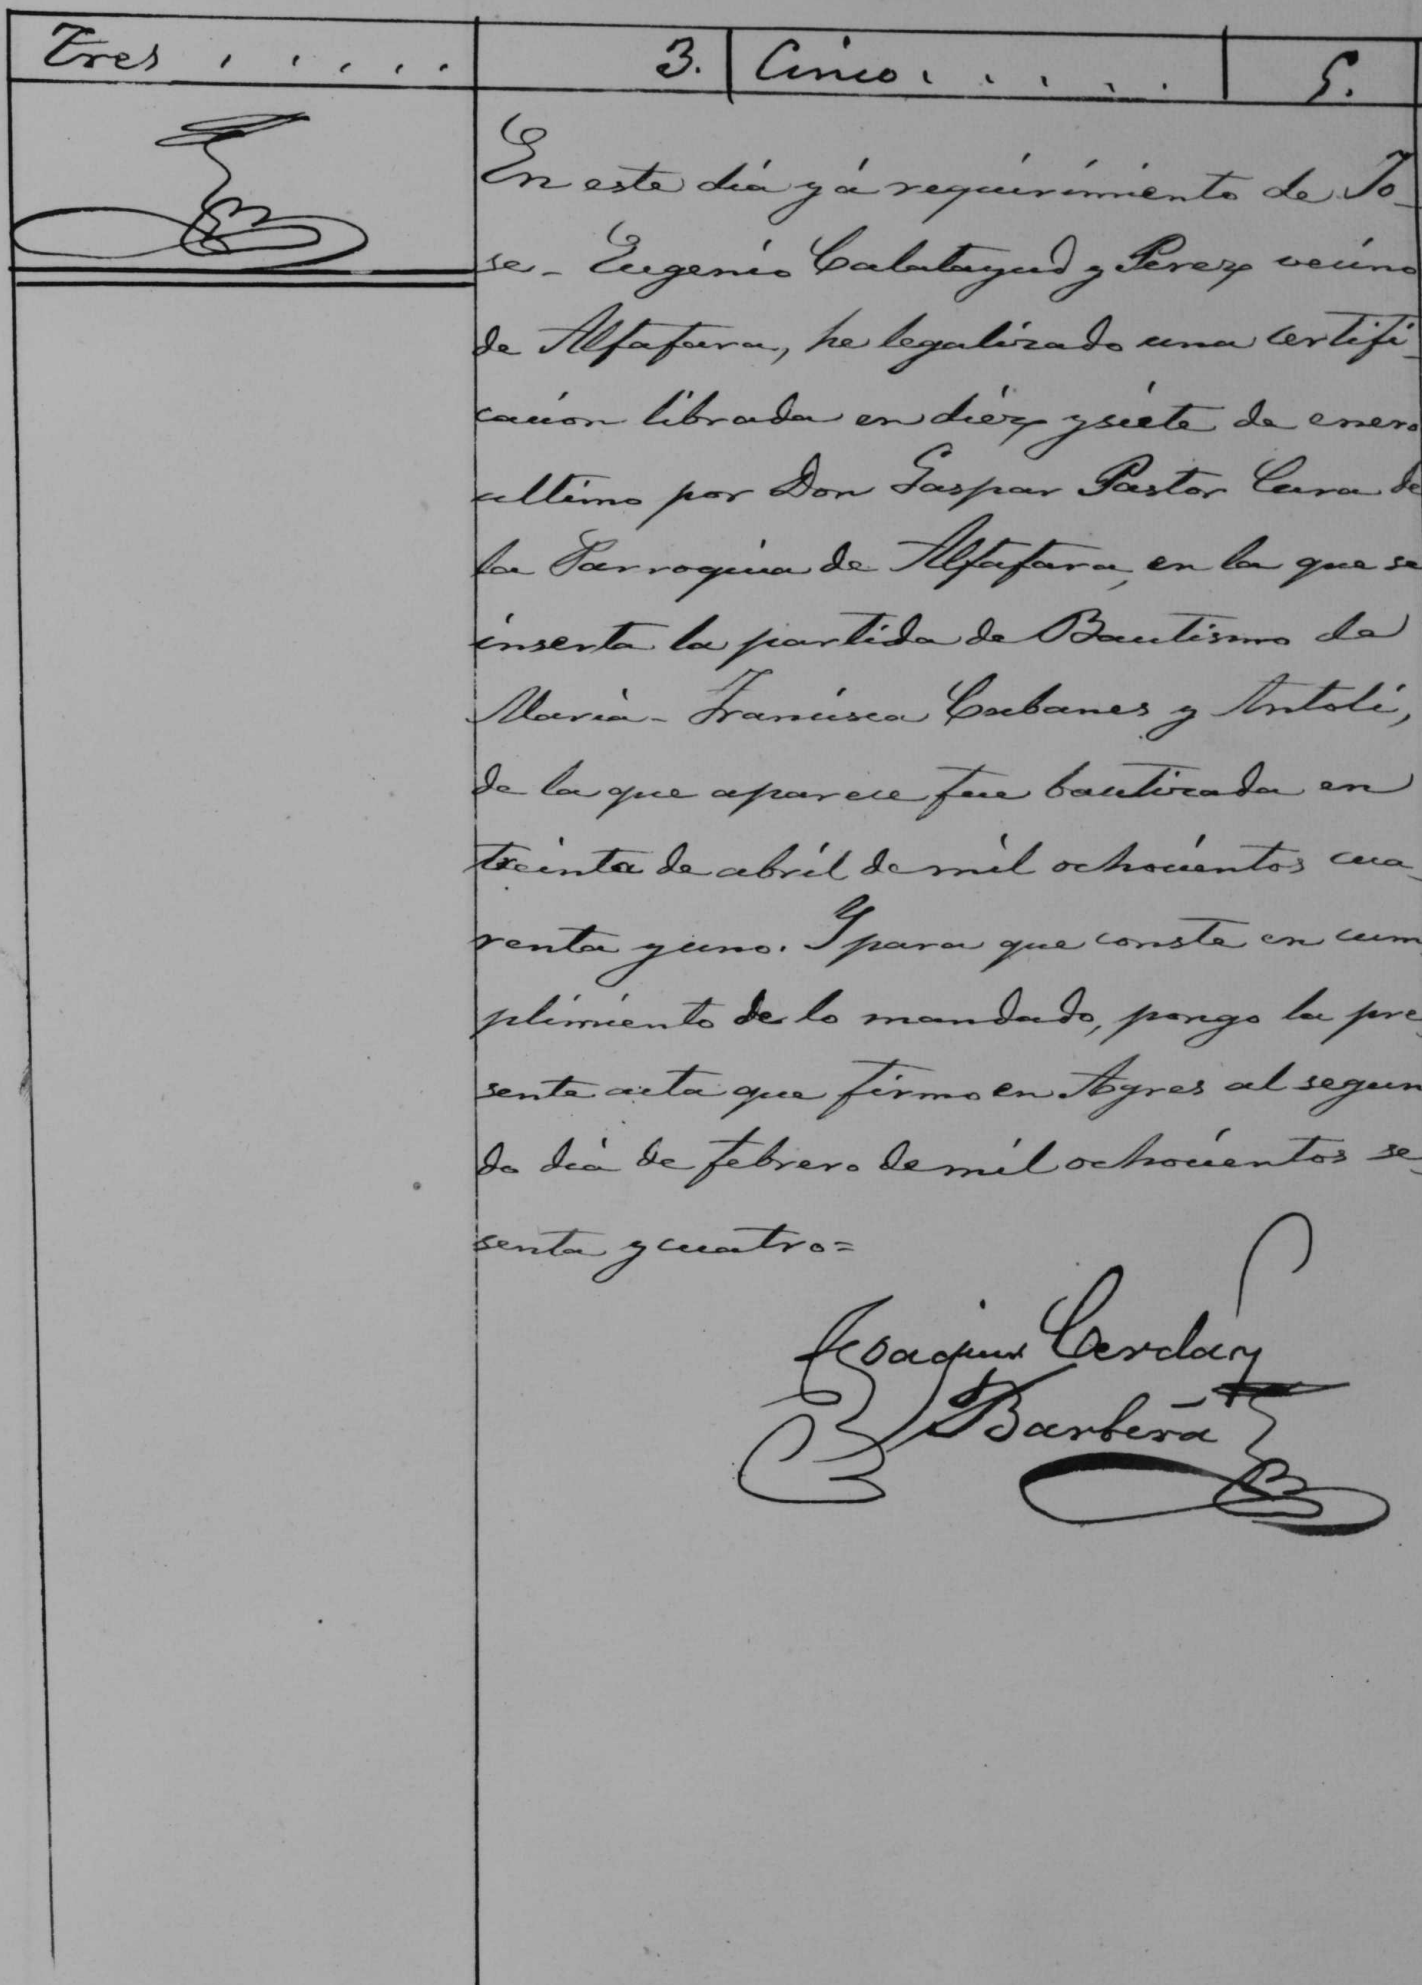 Tres . . . . . 3. Cinco . . . . . 5.
En este dia y á requirimiento de Jo-
se- Eugenio Calatayud y Perez vecino
de Alfafara, he legalizado una certifi-
cacion librada en diéz y siete de enero
ultimo por Don Gaspar Pastor Cura de
la Parroquia de Alfafara, en la que se
inserta la partida de Bautismo de
Maria- Francisca Cabanes y Antoli,
de la que aparece fue bautizada en
treinta de abril de mil ochocientos cua-
renta y uno. Y para que conste en cum
plimiento de lo mandado, pongo la pre-
sente acta que firmo en Agres al segun
do dia de febrero de mil ochocientos se-
senta y cuatro=
Joaquin Cerdá y
Barberá